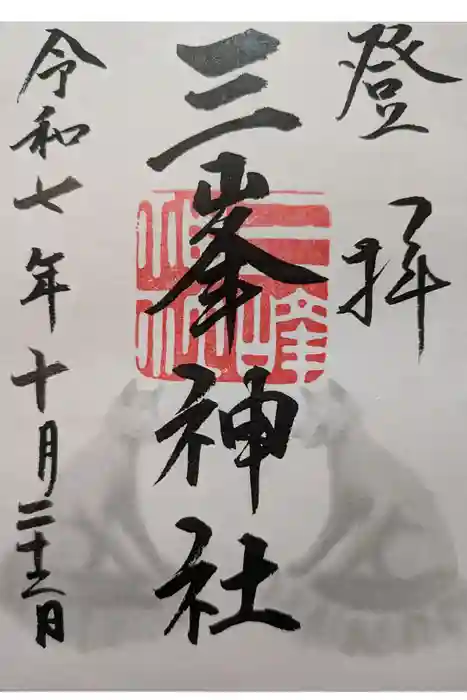 登拝
三峯神社
令和七年十月二十二日